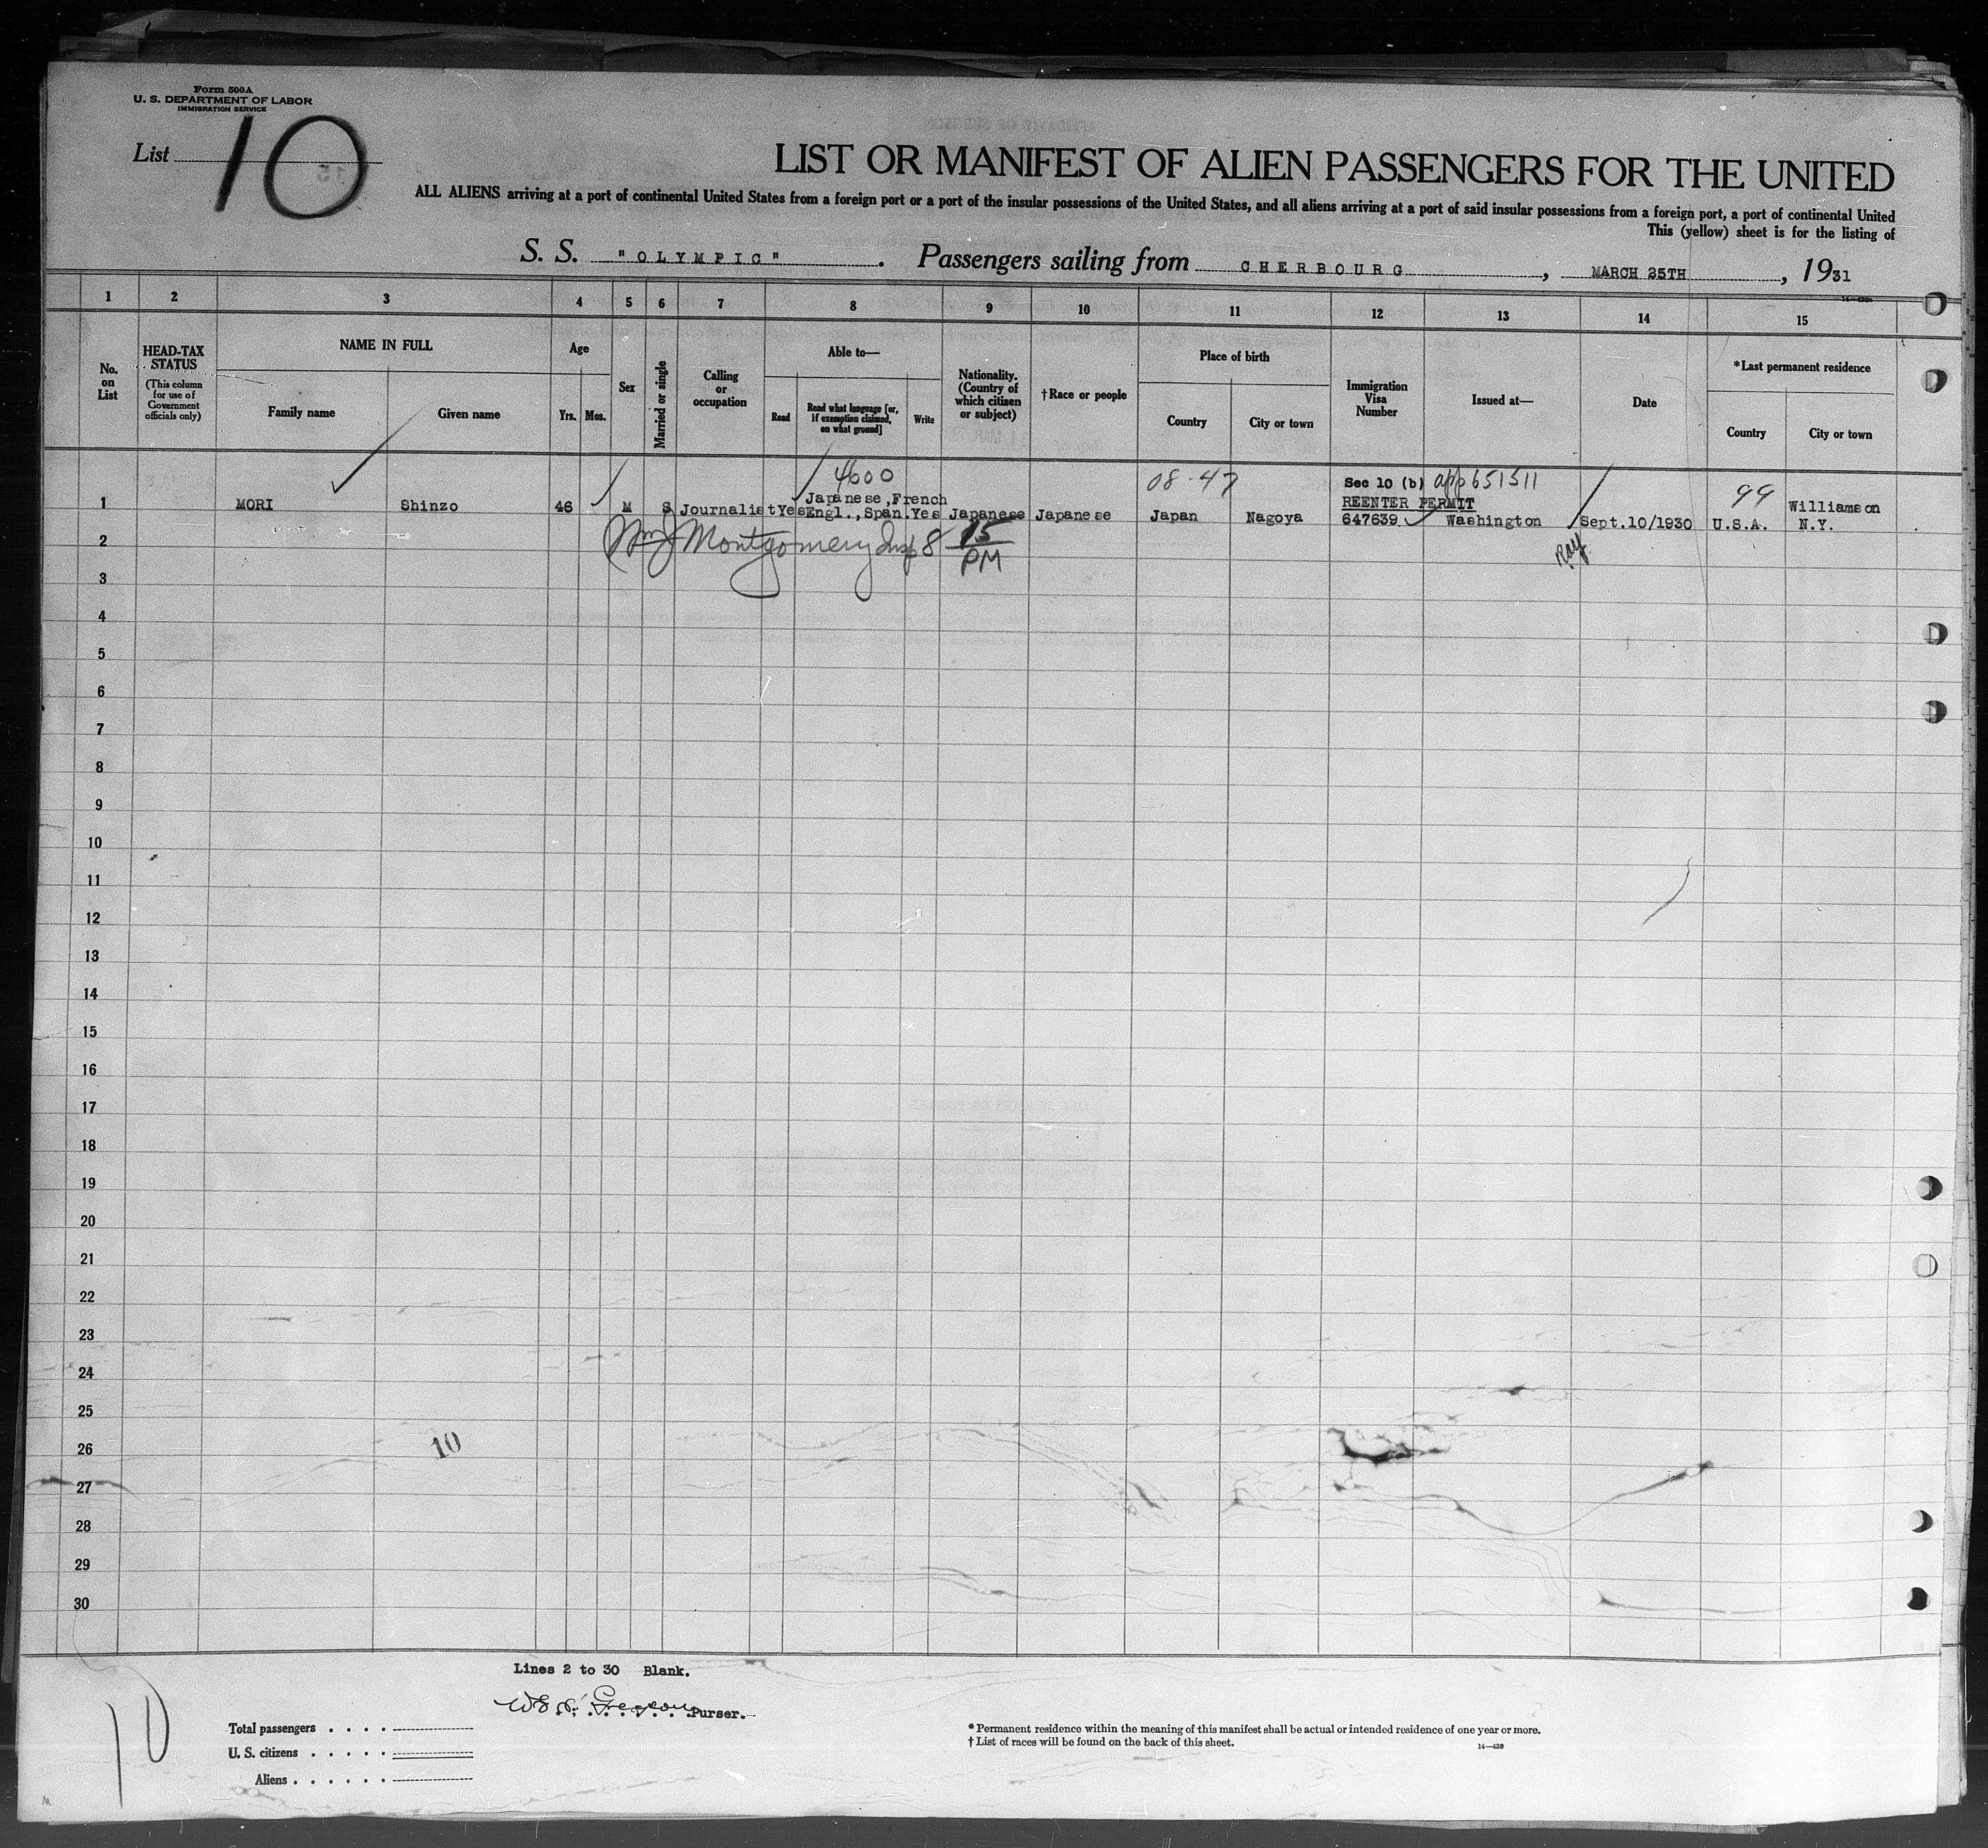 Form 500A
U. S. DEPARTMENT OF LABOR
IMMIGRATION SERVICE
List 10
LIST OR MANIFEST OF ALIEN PASSENGERS FOR THE UNITED
ALL ALIENS arriving at a port of continental United States from a foreign port or a port of the insular possessions of the United States, and all aliens arriving at a port of said insular possessions from a foreign port, a port of continental United
This (yellow) sheet is for the listing of
S. S. "OLYMPIC". Passengers sailing from CHERBOURG, MARCH 25TH, 1931
1 2 3 4 5 6 7 8 9 10 11 12 13 14 15
No. on List
HEAD-TAX STATUS
(This column for use of Government officials only)
NAME IN FULL
Family name
Given name
Age
Yrs. Mos.
Sex
Married or single
Calling or occupation
Able to—
Read
Read what language [or, if exemption claimed, on what ground]
Write
Nationality. (Country of which citizen or subject)
†Race or people
Place of birth
Country
City or town
Immigration Visa Number
Issued at—
Date
*Last permanent residence
Country
City or town
4600
08-47
Sec 10 (b) app 651511
99
1 MORI Shinzo 46 M S Journalist Yes Japanese, French Engl., Span. Yes Japanese Japanese Japan Nagoya REENTER PERMIT 647639 Washington Sept.10/1930 U.S.A. Williamson N.Y.
2 Montgomery Insp 8 15 PM
3
4
5
6
7
8
9
10
11
12
13
14
15
16
17
18
19
20
21
22
23
24
25
26 10
27
28
29
30
Lines 2 to 30 Blank.
Purser.
10
Total passengers . . . .
U. S. citizens . . . . .
Aliens . . . . . .
* Permanent residence within the meaning of this manifest shall be actual or intended residence of one year or more.
† List of races will be found on the back of this sheet.
14—430